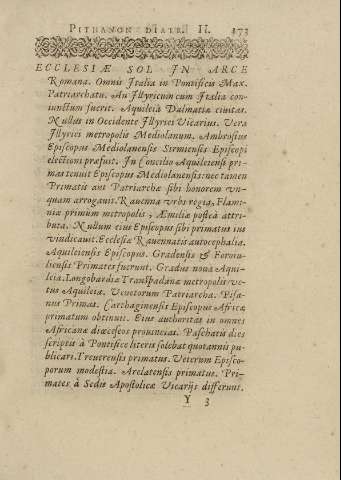 PITHANON DIATR. II. 173
ECCLESIÆ SOL IN ARCE
Romana. Omnis Italia in Pontificis Max.
Patriarchatu. An Illyricum cum Italia con-
iunctum fuerit. Aquileia Dalmatiæ ciuitas.
Nullus in Occidente Illyrici Vicarius. Vera
Illyrici metropolis Mediolanum. Ambrosius
Episcopus Mediolanensis Sirmiensis Episcopi
electioni præfuit. In Concilio Aquileiensi pri-
mas tenuit Episcopus Mediolanensis: nec tamen
Primatis aut Patriarchæ sibi honorem vn-
quam arrogauit. Rauenna vrbs regia, Flami-
niæ primum metropolis, Æmiliæ posteà attri-
buta. Nullum eius Episcopus sibi primatus ius
vindicauit. Ecclesiæ Rauennatis autocephalia.
Aquileiensis Episcopus. Gradensis & Foroiu-
liensis Primates fuerunt. Gradus noua Aqui-
leia. Longobardiæ Transpadanæ metropolis ve-
tus Aquileia. Venetorum Patriarcha. Pisa-
nus Primas. Carthaginensis Episcopus Africæ
primatum obtinuit. Eius authoritas in omnes
Africanæ diœceseos prouincias. Paschatis dies
scriptis à Pontifice literis solebat quotannis pu-
blicari. Treuerensis primatus. Veterum Episco-
porum modestia. Arelatensis primatus. Pri-
mates à Sedis Apostolicæ Vicarijs differunt.
Y 3